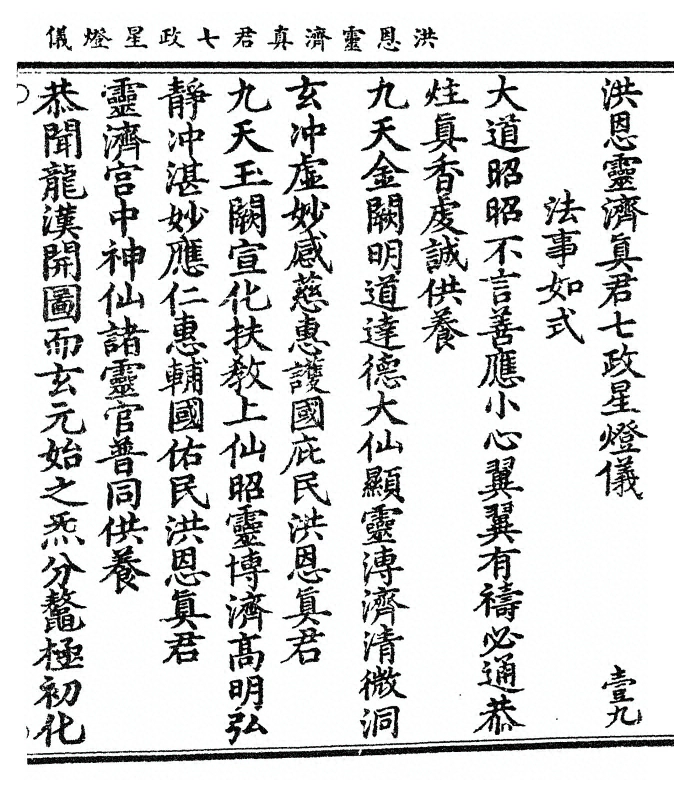 洪恩靈濟真君七政星燈儀
洪恩靈濟眞君七政星燈儀 壹九
法事如式
大道昭昭不言善應小心翼翼有禱必通恭
炷眞香虔誠供養
九天金闕明道達德大仙顯靈溥濟清微洞
玄冲虛妙感慈惠護國庇民洪恩眞君
九天玉闕宣化扶教上仙昭靈博濟高明弘
靜冲湛妙應仁惠輔國佑民洪恩眞君
靈濟宮中神仙諸靈官普同供養
恭聞龍漢開圖而玄元始之炁分鼇極初化